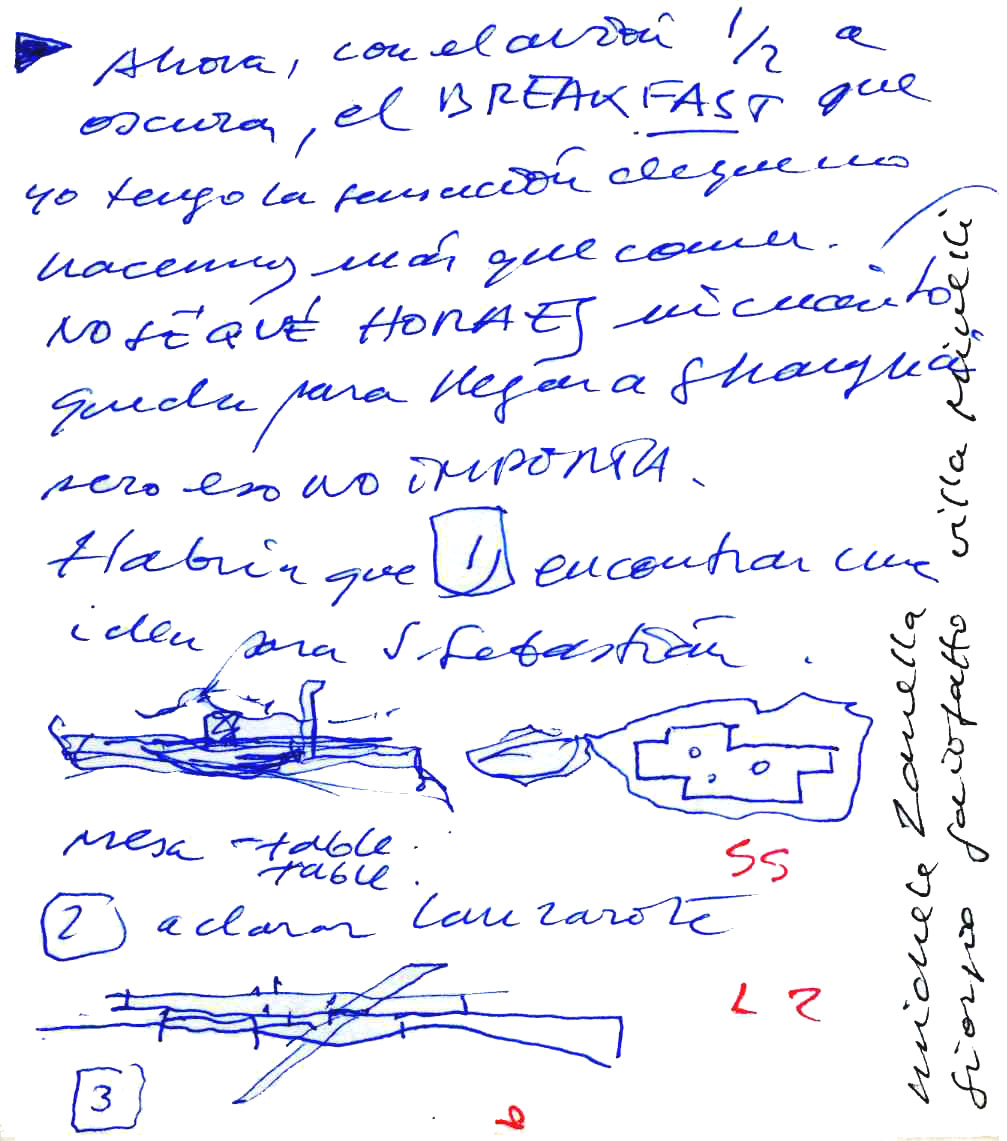 Ahora, con el avión 1/2 a
oscuras, el BREAKFAST que
yo tengo la sensación de que no
hacemos más que comer.
NO SÉ QUÉ HORA ES ni cuánto
queda para llegar a Shanghai,
pero eso NO IMPORTA.
Habría que 1 encontrar una
idea para S. Sebastián.
mesa - table.
table.
SS
2 aclarar Lanzarote
LZ
3
6
michele Zanella
giorgio villa